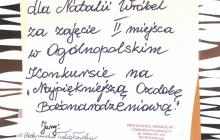 dla Natalii Wróbel
za zajęcie II miejsca
w Ogólnopolskim
Konkursie na
"Najpiękniejszą Ozdobę
Bożonarodzeniową"
Jury: